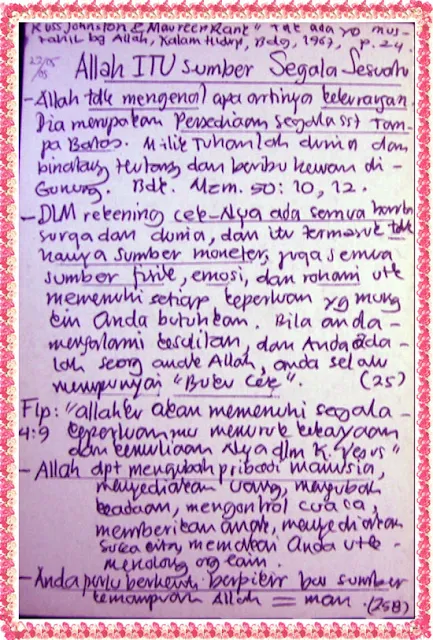 Russ Johnston & Maureen Rank "Tdk ada yg mus-
tahil bg Allah, Kalam Hidup, Bdg, 1987, p. 24.
22/05
/05
Allah ITU sumber Segala Sesuatu
- Allah tdk mengenal apa artinya kekurangan.
Dia merupakan Persediaan segala sst Tan-
pa Batas. Milik Tuhanlah dunia dan
binatang Hutang dan beribu hewan di-
Gunung. Bdk. Mzm. 50:10, 12.
- DLM rekening cek-Nya ada semua harta
surga dan dunia, dan itu termasuk tdk
hanya sumber moneter, juga semua
sumber fisik, emosi, dan rohani utk
memenuhi setiap keperluan yg mung
kin Anda butuhkan. Bila anda-
mengalami kesulitan, dan Anda ada-
lah seorg anak Allah, anda selalu
mempunyai "Buku Cek". (25)
Flp: "allahku akan memenuhi segala-
4:9 keperluanmu menurut kekayaan
dan kemuliaan Nya dlm K. Yesus"
- Allah dpt mengubah pribadi manusia,
menyediakan uang, mengubah
keadaan, mengontrol cuaca,
memberikan anak, menyediakan
suka cita, memakai Anda utk-
menolong org lain.
- Anda perlu berhenti berpikir bw sumber
kemampuan Allah = man. (258)